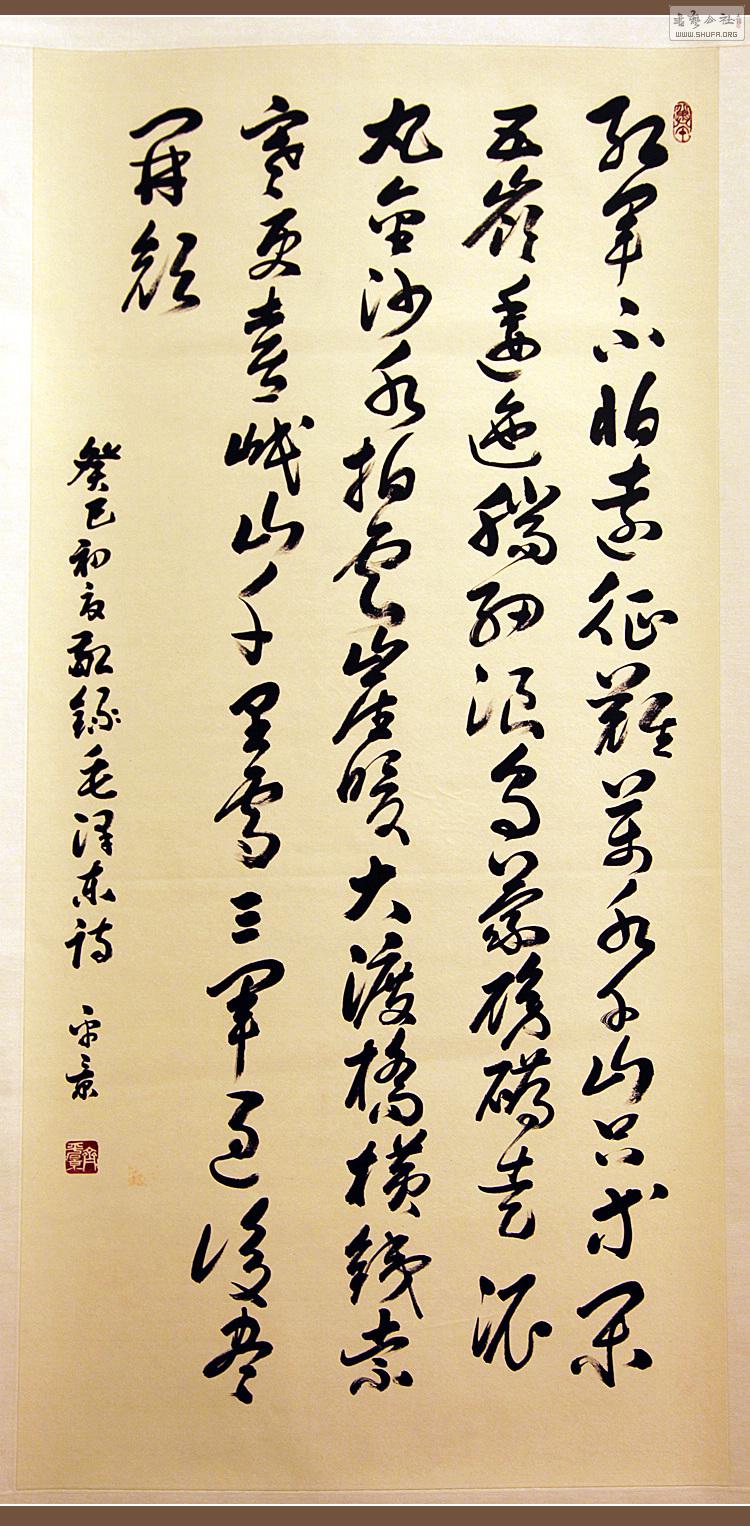 紅軍不怕遠征難萬水千山只等閑
五嶺逶迤騰細浪烏蒙磅礴走泥
丸金沙水拍雲崖暖大渡橋橫鐵索
寒更喜岷山千里雪三軍過後盡
開顏
癸巳初夏敬錄毛澤東詩 平景
齊平景
書藝公社
WWW.SHUFA.ORG